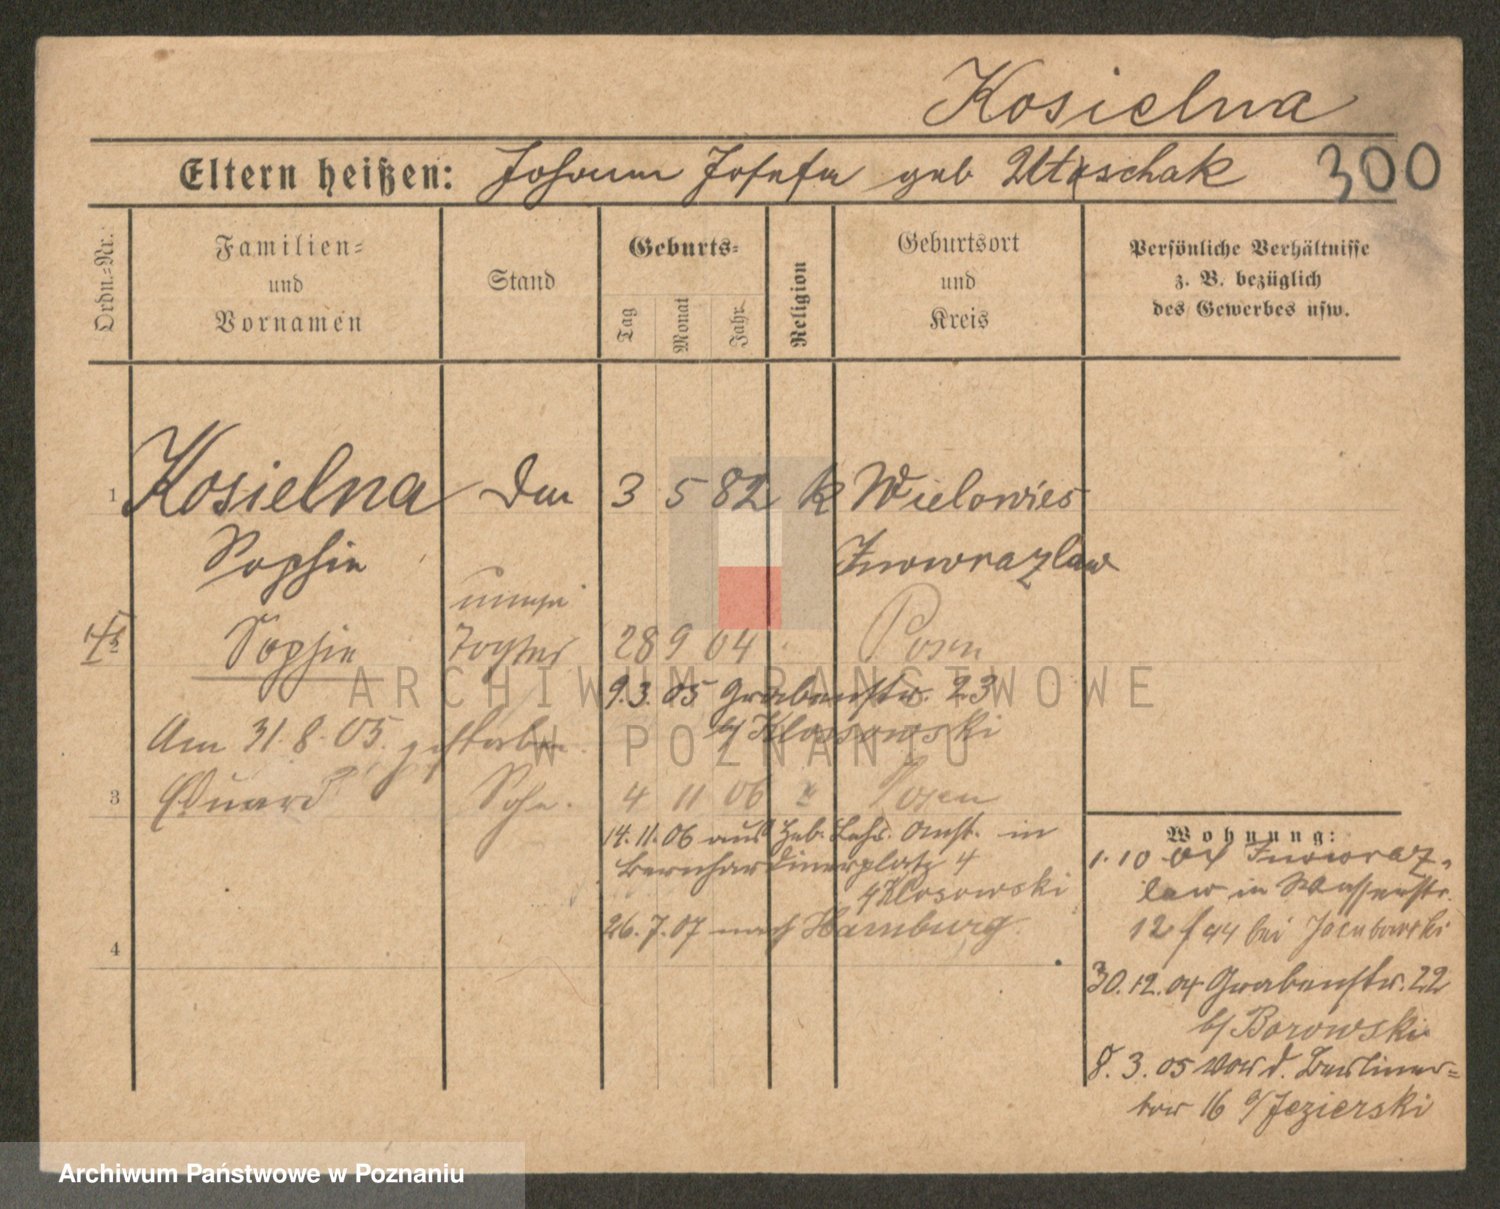 Kosielna
Eltern heißen: Johann Josefa geb Utaschak 300
Ordn.-Nr.:
Familien-
und
Vornamen
Stand
Geburts-
Tag
Monat
Jahr.
Religion
Geburtsort
und
Kreis
Persönliche Verhältnisse
z. B. bezüglich
des Gewerbes usw.
1 Kosielna 3 5 82 k Wielowies
Sophie Inowrazlaw
Sophie Tochter 28 9 04 Posen
9.3.05 Grabenstr. 23
b/ Klossowski
Am 31.8.05. gestorben.
3 Eduard Sohn. 4 11 06 " Posen
14.11.06 aus Heb. Lehr. Anst. in
Bernhardinerplatz 4
b/ Klosowski
26.7.07 nach Hamburg.
4
Wohnung:
1.10 04 Inowraz-
law in Wasserstr.
12 bei
30.12.04 Grabenstr. 22
b/ Borowski
8.3.05 vor d. Berliner-
tor 16 b/ Jezierski
ARCHIWUM PAŃSTWOWE
W POZNANIU
Archiwum Państwowe w Poznaniu